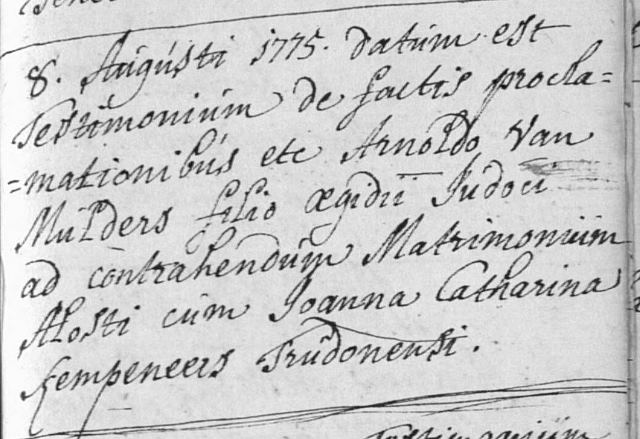 8. Augústi 1775. datúm est
Testimoniúm de factis procla=
=mationibús etc Arnoldo Van
Múlders filio ægidii Judoci
ad contrahendúm Matrimoniúm
Alosti cúm Joanna Catharina
Kempeneers Trúdonensi.